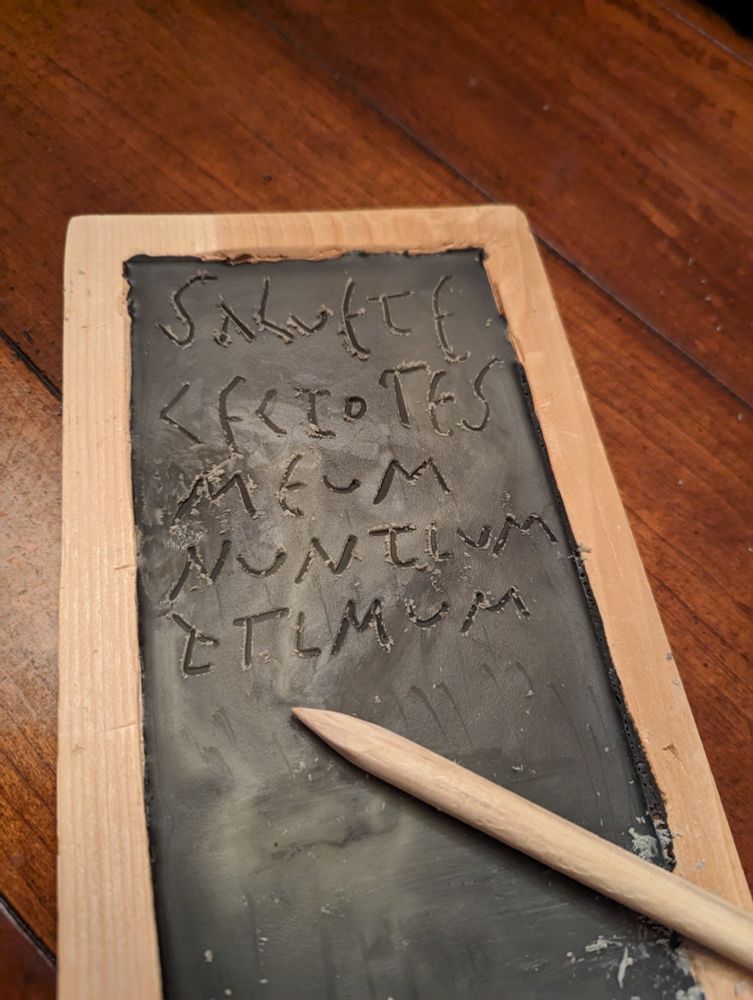 SALUETE
LECTORES
MEUM
NUNTIUM
PRIMUM